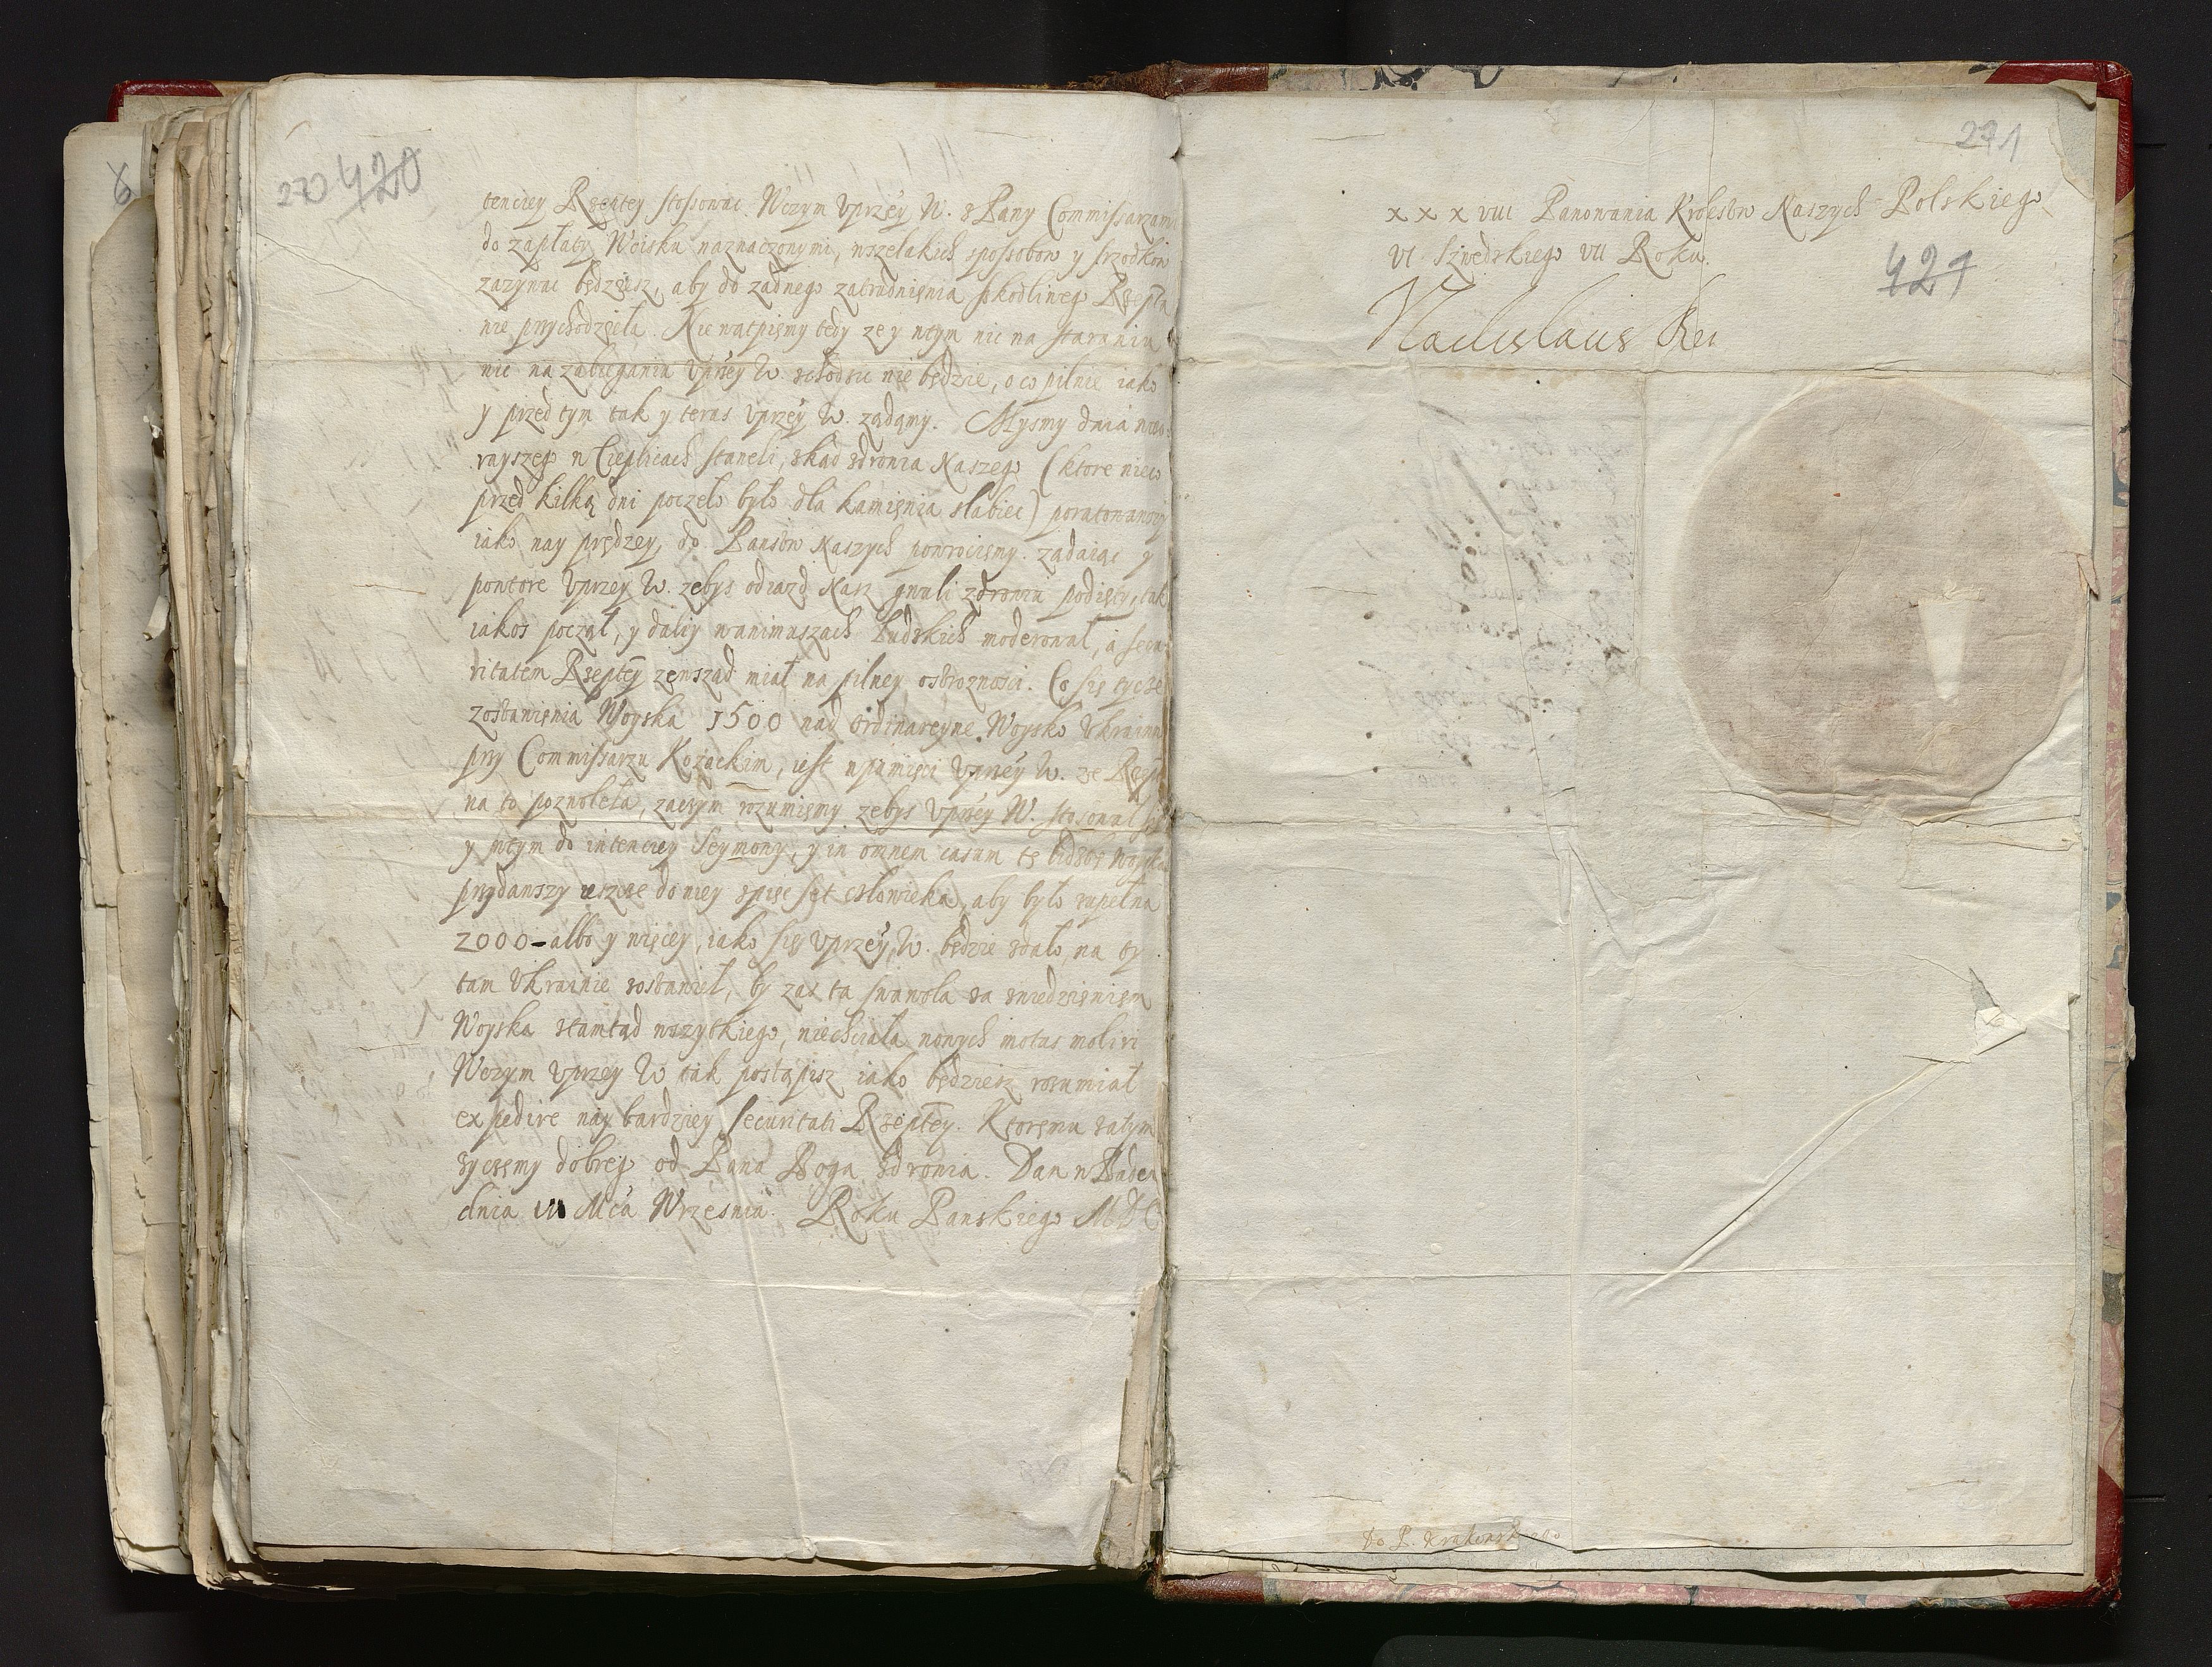 270 420
tenciey Rzeptey stossować. Wczym Uprzey W. z Pany Commissarzami
do zapłaty Woisku naznaczonymi, wszelakich spossobow y srzodkow
zazywac będziesz, aby do żadnego zatrudnięnia szkodliwego Rzepta
nie przychodzięła. Nie wątpięmy tedy ze y wtym nic na staraniu
nic na zabieganiu Uprzey W. schodzic nie będzie, o co pilnie iako
y przed tym tak y teraz Uprzey W. ządamy. Mysmy dnia wczo-
rayszego w Cieplicach staneli, skąd zdrowia Naszego (ktore nieco
przed kilką dni poczęło było dla kamięnia słabiec) poratowawszy
iako nay prędzey, do Panstw Naszych powrocięmy. ządaiąc y
powtore Uprzey W. zebys odiazd Nasz gwuli zdrowiu podięty, tak
iakos począł, y daliy wanimuszach Ludzkich moderował, a secu-
ritatem Rzeptey zewsząd miał na pilney ostroznosci. Co się tycze
zostawięnia Woyska 1500 nad Ordinaryine Woysko Ukrainne
przy Commissarzu Kozackim, iest w pamięci Uprzey W. ze Rzepta
na to pozwoleła, zaczym rozumięmy zebys Uprzey W. stosował się
y wtym do intenciey Seymowy, y in omnem casum tę liczbę Woyska
przydawszy ieszcze do niey z pięc set człowieka, aby było zupełna
2000 albo y więcey, iako się Uprzey W. będzie zdało, na ty
tam Ukrainie zostawieł, by zas ta swawola za zwiedzięnięm
Woyska ztamtąd wszytkiego, niechciała nowych motus moliri
Wczym Uprzey W tak postąpisz iako będziesz rozumiał
expedire nay bardziey securitati Rzeptey. Ktoręmu zatym
zyczęmy dobrego od Pana Boga zdrowia. Dan w Baden
dnia VII Mca Wrzesnia. Roku Panskiego MDC
271
XXXVIII Panowania Krolestw Naszych Polskiego
VI Szwedzkiego VII Roku.
421
Vladislaus Rex
Do P. Krakowskiego